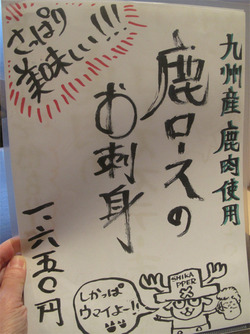 九州産鹿肉使用
鹿ロースの
お刺身
さっぱり
美味しい!!!
一、六五〇円
SHIKA
PPER
しかっぱ
ウマイよー!!